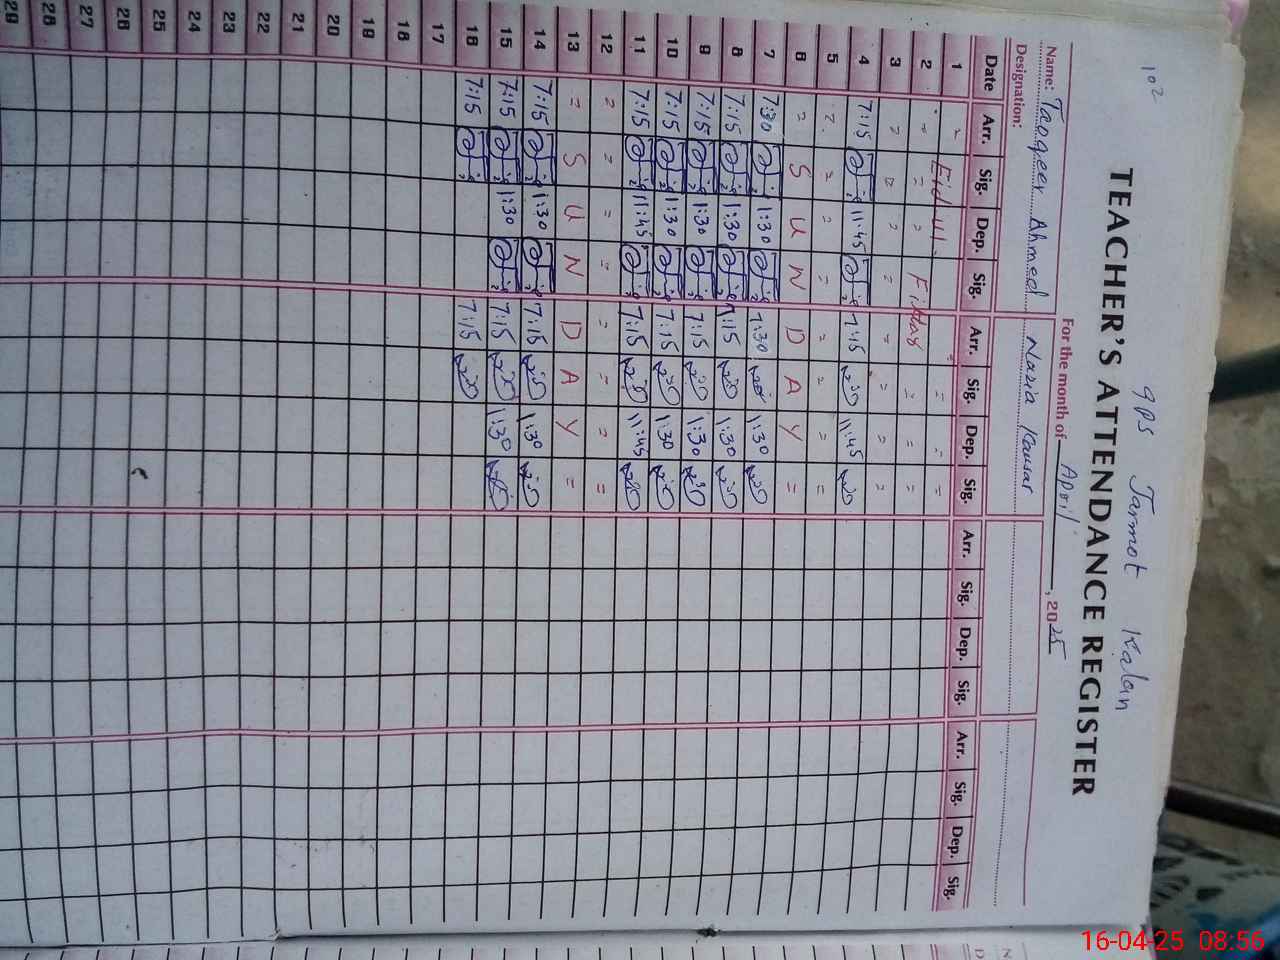 102
gps Jarmot Kalan
TEACHER'S ATTENDANCE REGISTER
For the month of April, 2025
Name: Taoqeer Ahmed Nazia Kausar
Designation:
Date Arr. Sig. Dep. Sig. Arr. Sig. Dep. Sig. Arr. Sig. Dep. Sig. Arr. Sig. Dep. Sig.
1 " Eid ul. " " "
2 " " " Fittar " " "
3 " " " " " " "
4 7:15 11:45 7:15 11:45
5 " " " " " " "
6 " S U N D A Y "
7 7:30 1:30 7:30 1:30
8 7:15 1:30 7:15 1:30
9 7:15 1:30 7:15 1:30
10 7:15 1:30 7:15 1:30
11 7:15 11:45 7:15 11:45
12 " " " " " " " "
13 " S U N D A Y "
14 7:15 1:30 7:15 1:30
15 7:15 1:30 7:15 1:30
16 7:15 7:15
17
18
19
20
21
22
23
24
25
26
27
28
29
16-04-25 08:56